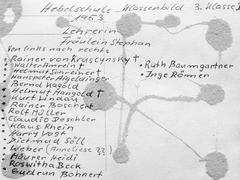 Hebelschule Klassenbild 3. Klasse
1953
Lehrerin
Fräulein Stephan
Von links nach rechts
Rainer von Kruscynsky †
Walter Amrein †
Helmut Schreinert †
Hanspeter Algeldinger
Bernd Hagold
Helmut Mangold †
Kurt Lindau
Rainer Boschert
Rolf Müller
Claudio Deschler
Klaus Rhein
Harry Vogt
Dietmud Söll
Weber (Anneliese ??)
Maurer Heidi
Roswitha Beck
Gudrun Bohnert
• Ruth Baumgartner
• Inge Rönnen